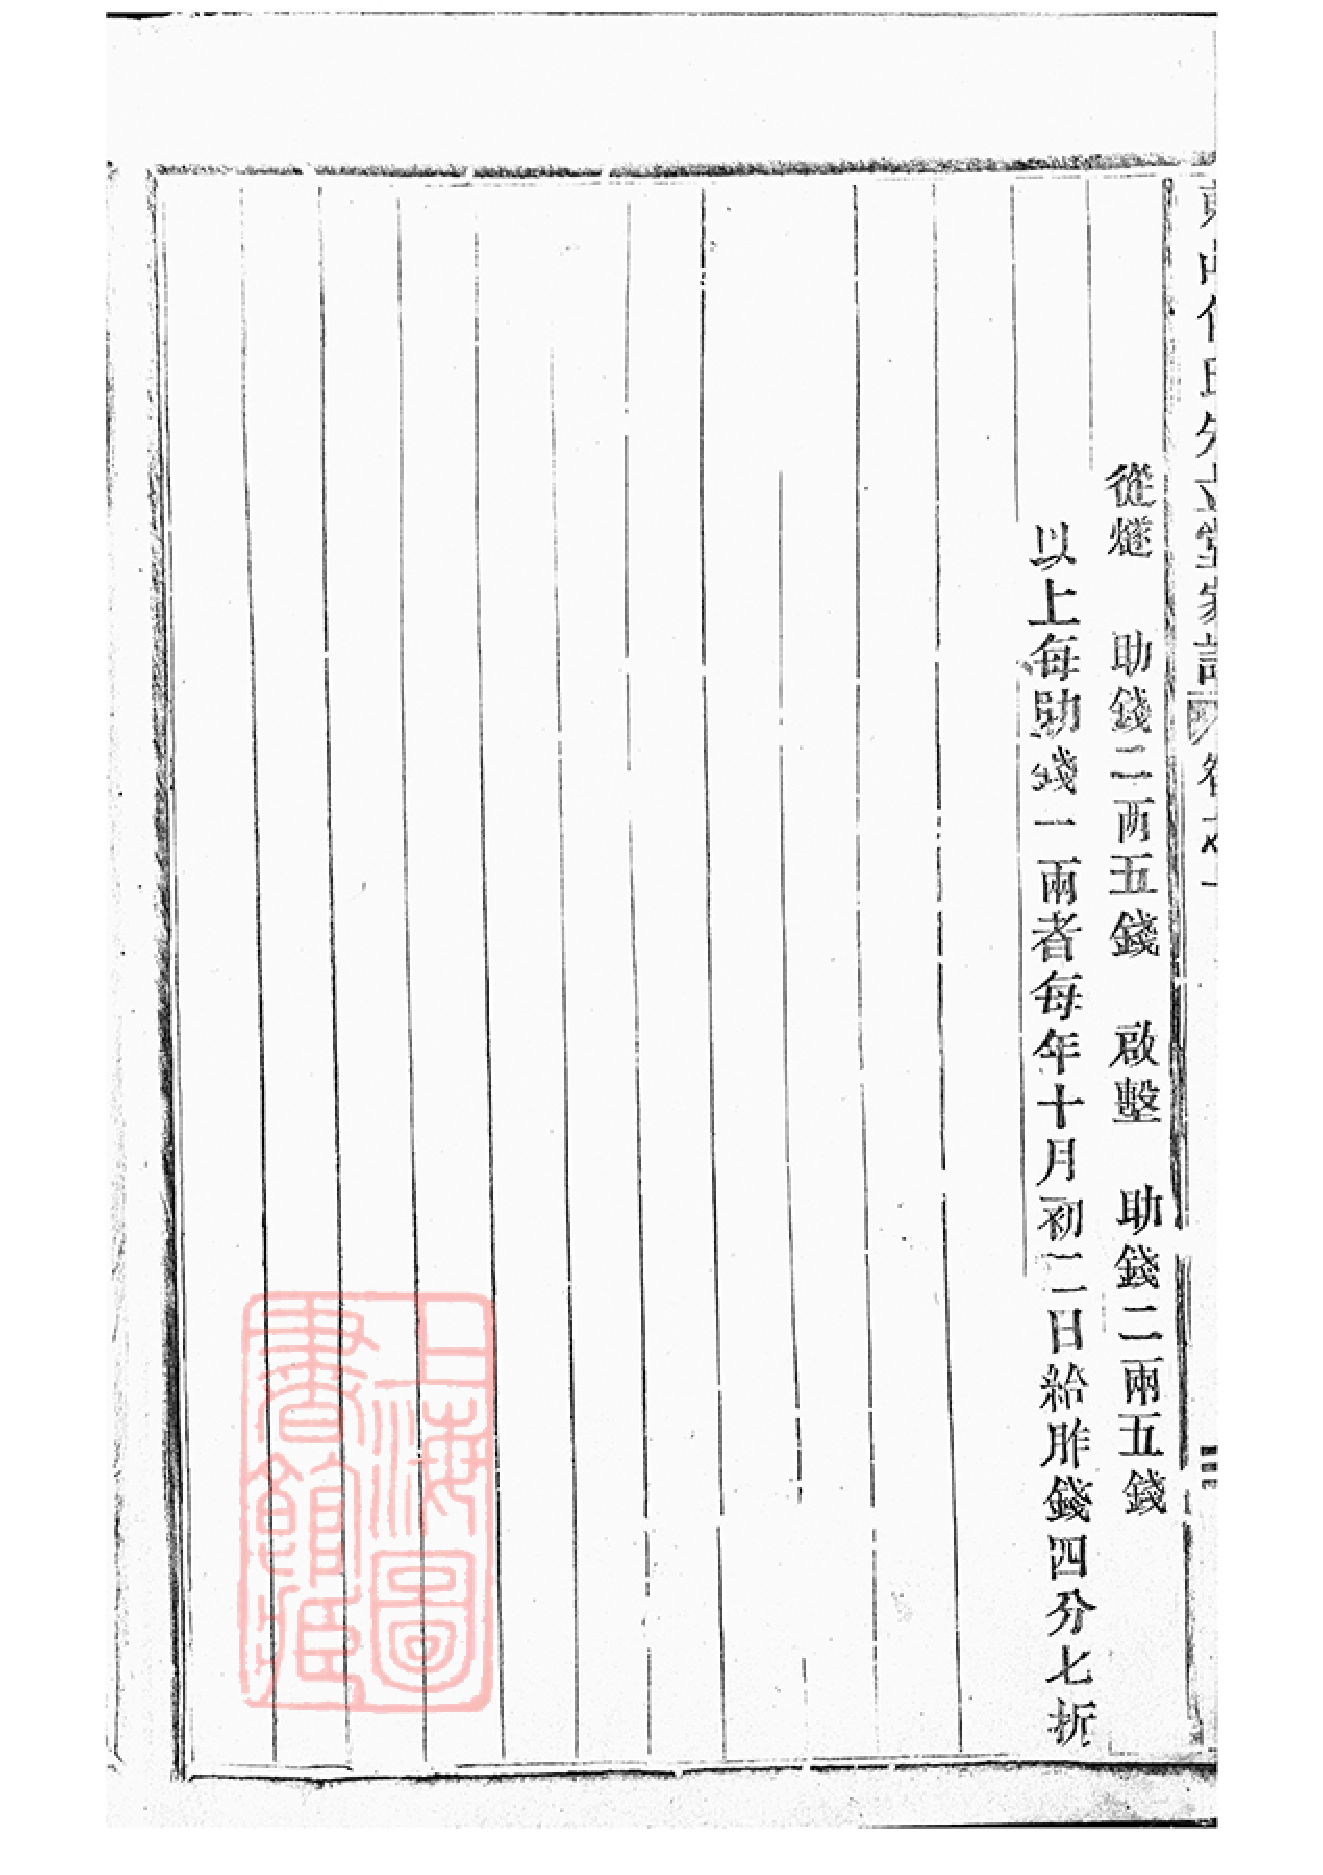 從燧　助錢二两五錢　啟墼　助錢二兩五錢
以上每助錢一兩者每年十月初二日給胙錢四分七折
上海圖
書館藏